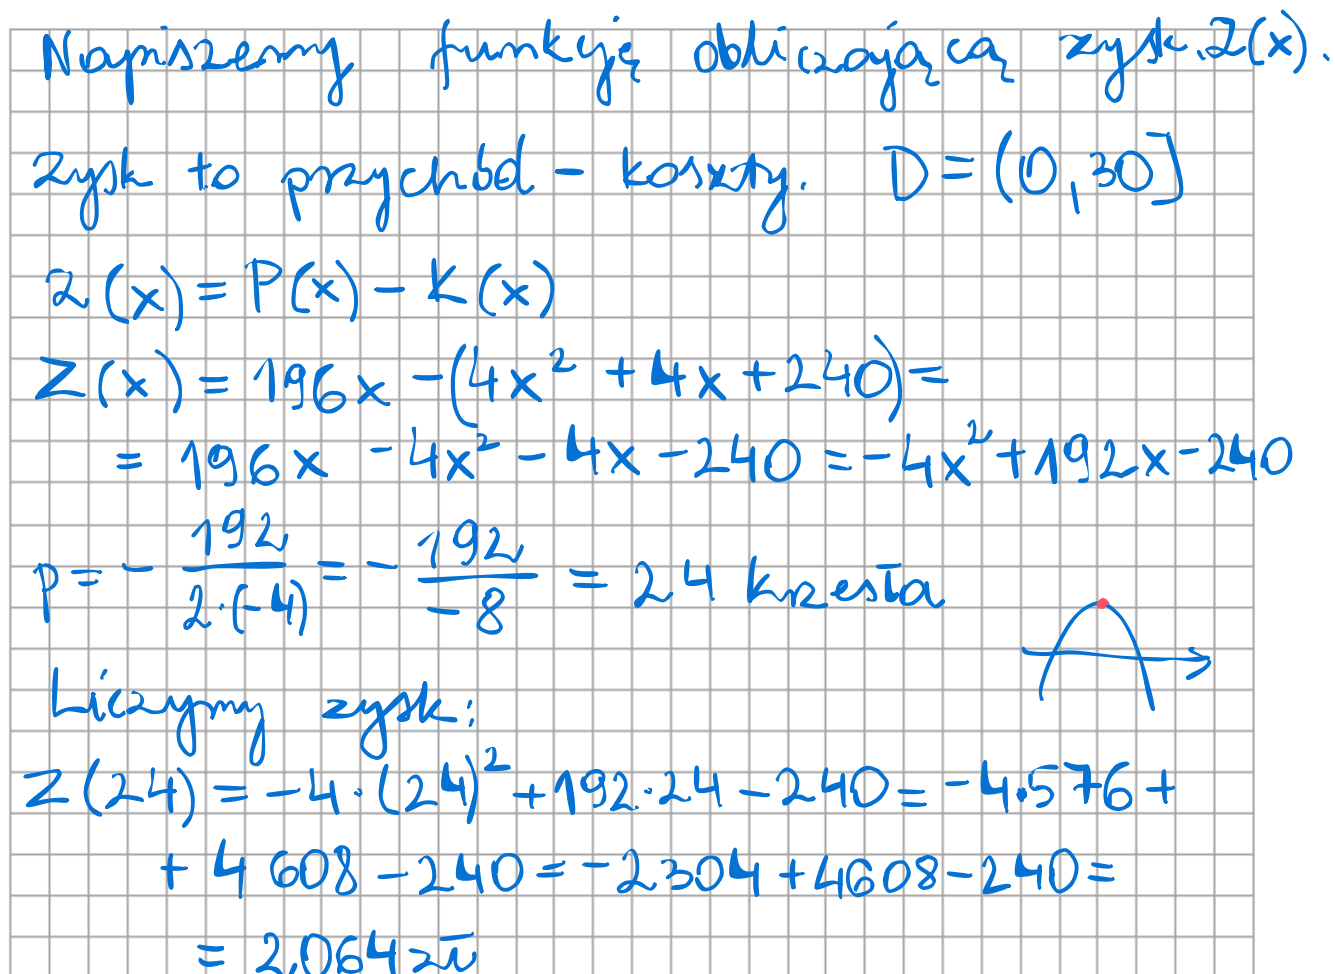 Napiszemy funkcję obliczającą zysk Z(x).
Zysk to przychód - koszty. D = (0,30]
Z(x) = P(x) - K(x)
Z(x) = 196x - (4x² + 4x + 240) =
= 196x - 4x² - 4x - 240 = -4x² + 192x - 240
p = - 192/(2·(-4)) = - 192/(-8) = 24 krzesła
Liczymy zysk:
Z(24) = -4·(24)² + 192·24 - 240 = -4·576 +
+ 4 608 - 240 = -2304 + 4608 - 240 =
= 2064 zł